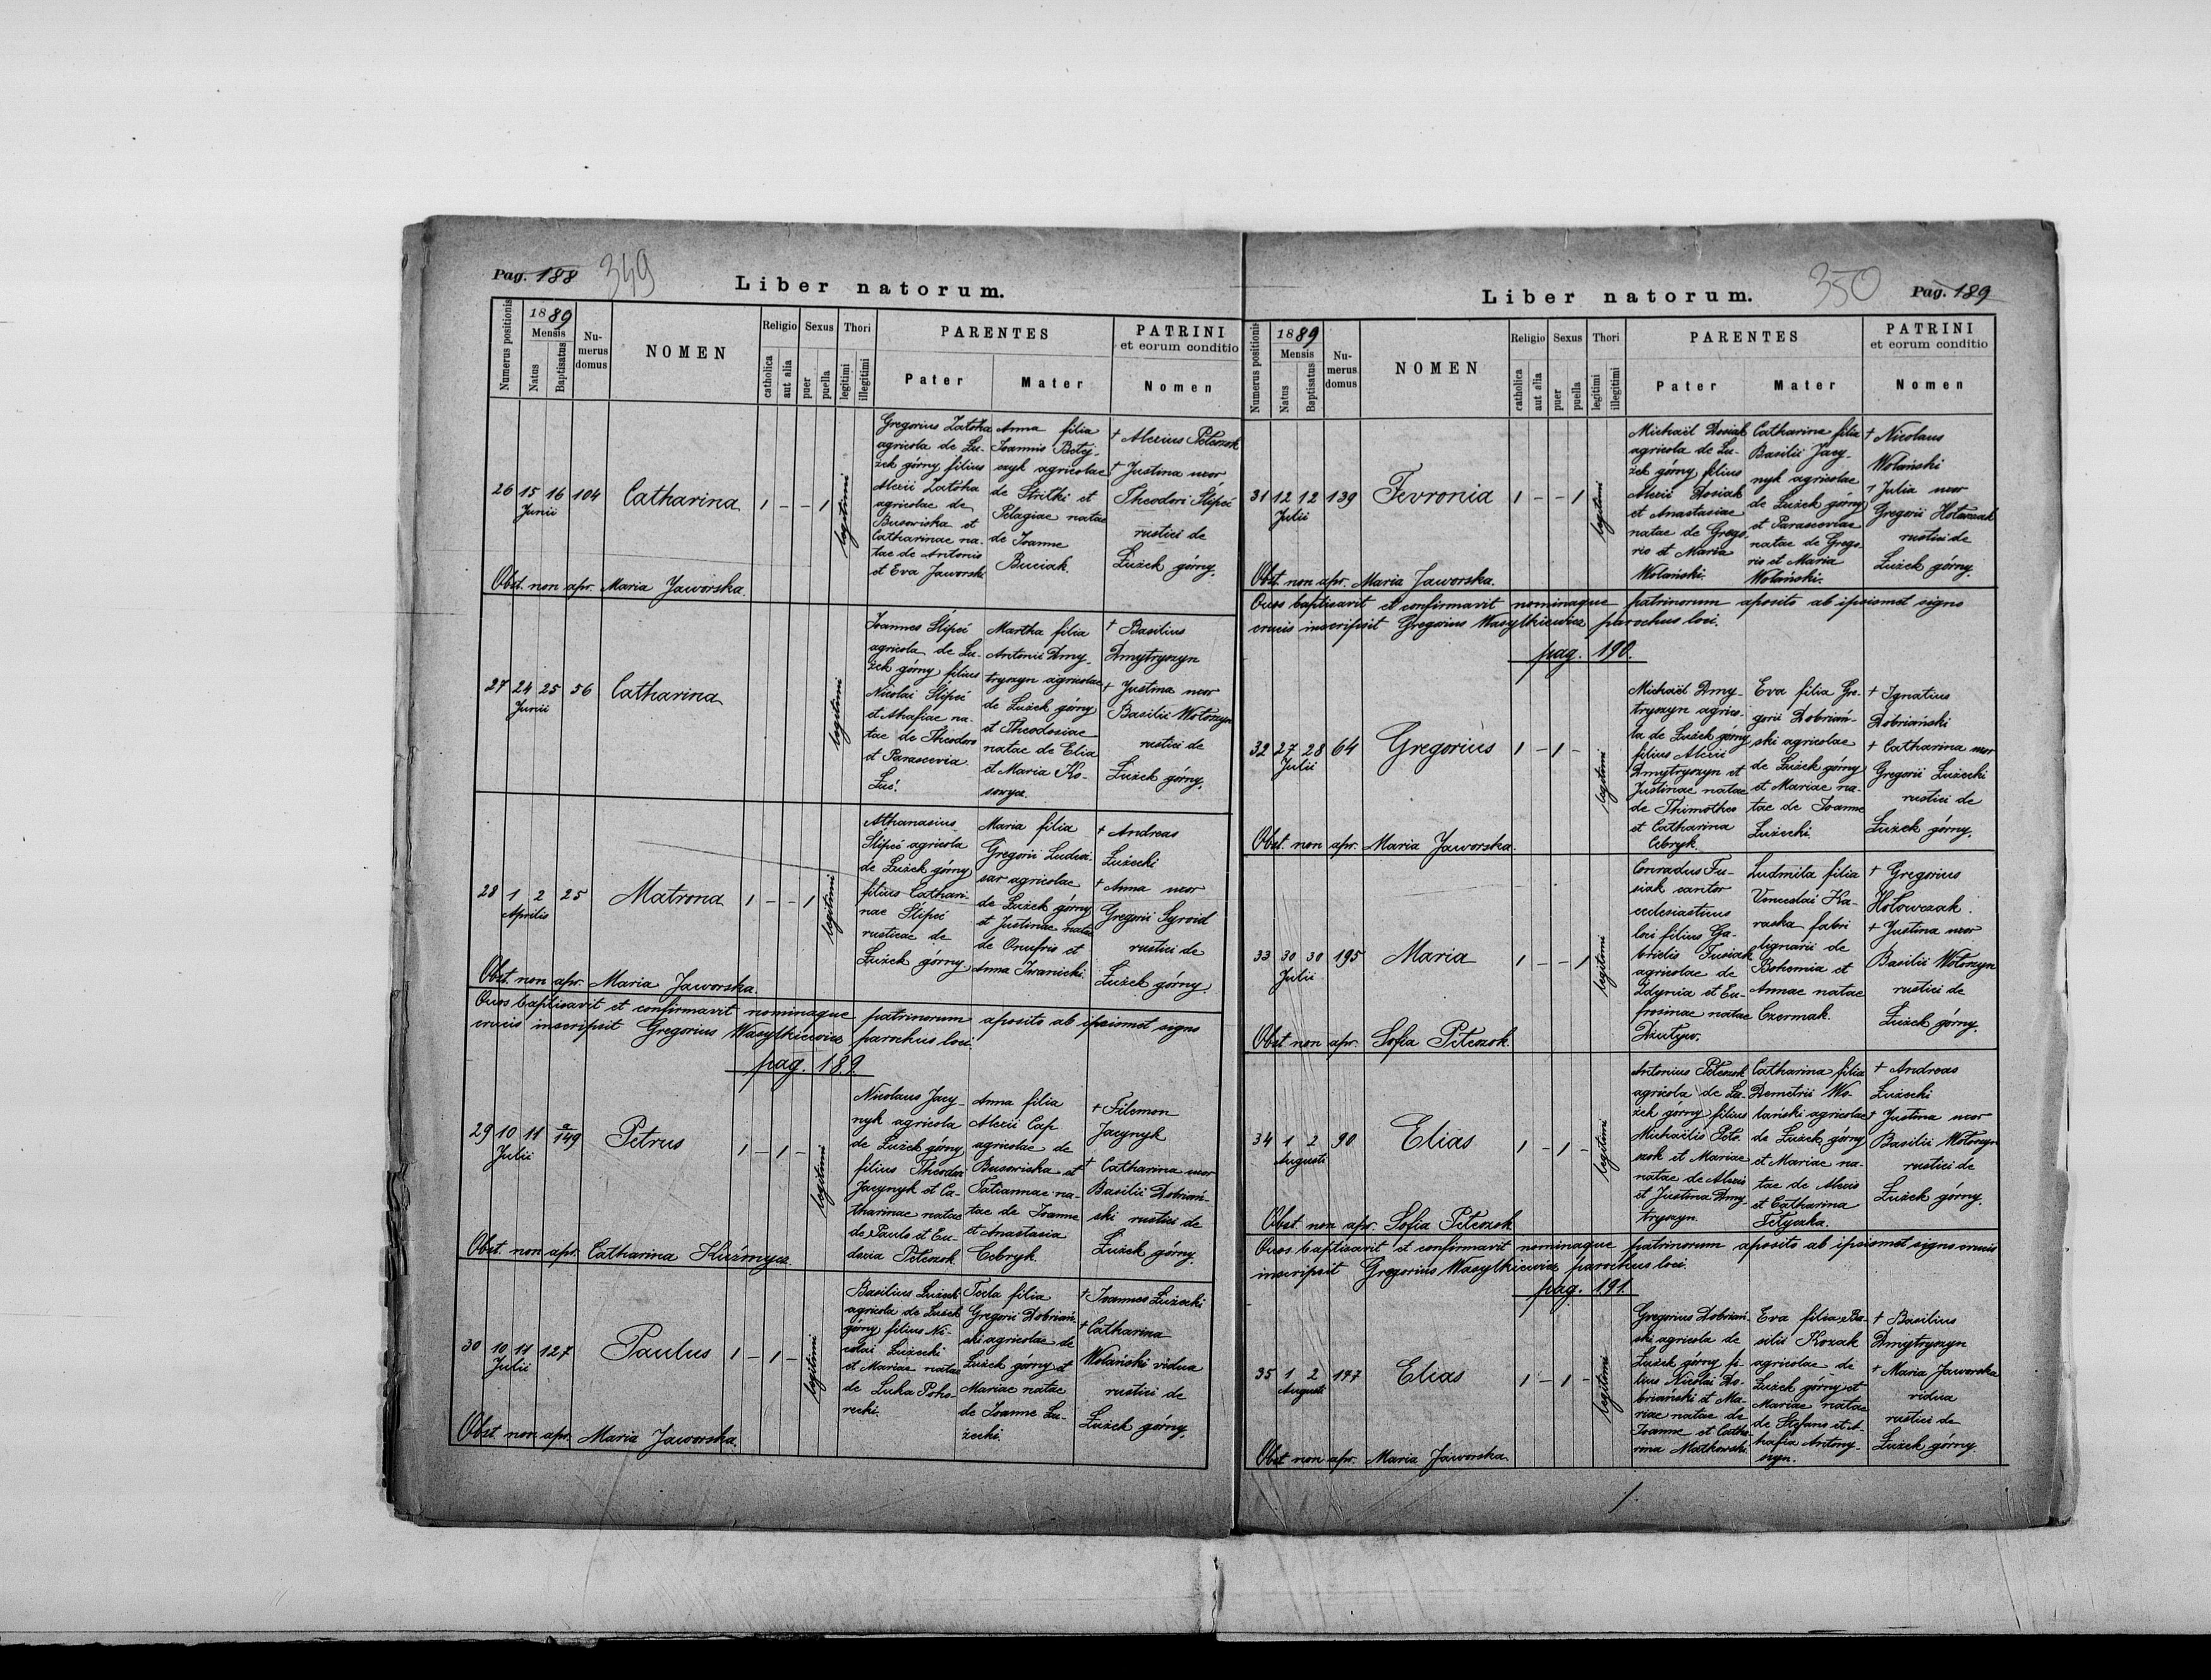 Pag. 188 349
Liber natorum.
Numerus positionis
1889
Mensis
Natus
Baptisatus
Nu-
merus
domus
NOMEN
Religio
catholica
aut alia
Sexus
puer
puella
Thori
legitimi
illegitimi
PARENTES
Pater
Mater
PATRINI
et eorum conditio
Nomen
26 15 16 104 Catharina 1 - - 1 legitimi
Junii
Gregorius Zatoka
agricola de Łu-
żek górny filius
Alexii Zatoka
agricolae de
Busowiska et
Catharinae na-
tae de Antonio
et Eva Jaworski
Anna filia
Joannis Betej-
czyk agricolae
de Stritki et
Pelagiae natae
de Joanne
Buciak.
† Alexius Petczok
† Justina uxor
Theodori Slipeć
rustici de
Łużek górny.
Obst. non apr. Maria Jaworska.
27 24 25 56 Catharina legitimi
Junii
Joannes Slipeć
agricola de Łu-
żek górny filius
Nicolai Slipeć
et Ahafiae na-
tae de Theodoro
et Parascevia
Łuć.
Martha filia
Antonii Dmy-
tryszyn agricolae
de Łużek górny
et Theodosiae
natae de Elia
et Maria Ko-
sowycz.
† Basilius
Dmytryszyn
† Justina uxor
Basilii Wołoszyn
rustici de
Łużek górny.
28 1 2 25 Matrona 1 - - 1 legitimi
Aprilis
Athanasius
Slipeć agricola
de Łużek górny
filius Cathari-
nae Slipeć
rusticae de
Łużek górny
Maria filia
Gregorii
agricolae
de Łużek górny
et Justinae natae
de Onufrio et
Anna Iwanicki.
† Andreas
Łużecki
† Anna uxor
Gregorii Syroid
rustici de
Łużek górny.
Obst. non apr. Maria Jaworska.
Quos baptisavit et confirmavit nominaque patrinorum aposito ab ipsismet signo
crucis inscripsit Gregorius Wasylkiewicz parochus loci.
pag. 189.
29 10 11 a/149 Petrus 1 - 1 - legitimi
Julii
Nicolaus Jacy-
nyk agricola
de Łużek górny
filius Theodori
Jacynyk et Ca-
tharinae natae
de Paulo et Eu-
docia Petczok.
Anna filia
Alexii Cap
agricolae de
Busowiska et
Tatiannae na-
tae de Joanne
et Anastasia
Cebryk.
† Filemon
Jacynyk
† Catharina uxor
Basilii Dobriań-
ski rustici de
Łużek górny.
Obst. non apr. Catharina Kuźmycz.
30 10 11 127 Paulus 1 - 1 - legitimi
Julii
Basilius Łużecki
agricola de Łużek
górny filius Ni-
colai Łużecki
et Mariae natae
de Luka Poho-
recki.
Tecla filia
Gregorii Dobriań-
ski agricolae de
Łużek górny et
Mariae natae
de Joanne Łu-
żecki.
† Joannes Łużecki
† Catharina
Wolański vidua
rustici de
Łużek górny.
Obst. non apr. Maria Jaworska.
Liber natorum.
350 Pag. 189
Numerus positionis
1889
Mensis
Natus
Baptisatus
Nu-
merus
domus
NOMEN
Religio
catholica
aut alia
Sexus
puer
puella
Thori
legitimi
illegitimi
PARENTES
Pater
Mater
PATRINI
et eorum conditio
Nomen
31 12 12 139 Fevronia 1 - - 1 legitimi
Julii
Michaël Dosiak
agricola de Łu-
żek górny filius
Alexii Dosiak
et Anastasiae
natae de Grego-
rio et Maria
Wolański.
Catharina filia
Basilii Jacy-
nyk agricolae
de Łużek górny
et Parasceviae
natae de Grego-
rio et Maria
Wolański.
† Nicolaus
Wolański
† Julia uxor
Gregorii Hołowczak
rustici de
Łużek górny.
Obst. non apr. Maria Jaworska.
Quos baptisavit et confirmavit nominaque patrinorum aposito ab ipsismet signo
crucis inscripsit Gregorius Wasylkiewicz parochus loci.
pag. 190.
32 27 28 64 Gregorius 1 - 1 - legitimi
Julii
Michaël Dmy-
tryszyn agrico-
la de Łużek górny
filius Alexii
Dmytryszyn et
Justinae natae
de Thimotheo
et Catharina
Cebryk.
Eva filia Gre-
gorii Dobriań-
ski agricolae
de Łużek górny
et Mariae na-
tae de Joanne
Łużecki.
† Ignatius
Dobriański
† Catharina uxor
Gregorii Łużecki
rustici de
Łużek górny.
Obst. non apr. Maria Jaworska.
33 30 30 195 Maria 1 - - 1 legitimi
Julii
Conradus Fu-
siak cantor
ecclesiasticus
loci filius Ga-
brielis Fusiak
agricolae de
Zdynia et Eu-
frosinae natae
Dziutyw.
Ludmila filia
Venceslai Ka-
raska fabri
lignarii de
Bohemia et
Annae natae
Czermak.
† Gregorius
Hołowczak.
† Justina uxor
Basilii Wołoszyn
rustici de
Łużek górny.
Obst. non apr. Sofia Petczok.
34 1 2 90 Elias 1 - 1 - legitimi
Augusti
Antonius Petczok
agricola de Łu-
żek górny filius
Michaëlis Pet-
czok et Mariae
natae de Alexio
et Justina Dmy-
tryszyn.
Catharina filia
Demetrii Wo-
lański agricolae
de Łużek górny
et Mariae na-
tae de Alexio
et Catharina
Tetyczka.
† Andreas
Łużecki
† Justina uxor
Basilii Wołoszyn
rustici de
Łużek górny.
Obst. non apr. Sofia Petczok
Quos baptisavit et confirmavit nominaque patrinorum aposito ab ipsismet signo crucis
inscripsit Gregorius Wasylkiewicz parochus loci.
pag. 191.
35 1 2 147 Elias 1 - 1 - legitimi
Augusti
Gregorius Dobriań-
ski agricola de
Łużek górny fi-
lius Nicolai Do-
briański et Ma-
riae natae de
Joanne et Catha-
rina Matkowski.
Eva filia Ba-
silii Kozak
agricolae de
Łużek górny et
Mariae natae
de Stefano et A-
hafia Antony-
szyn.
† Basilius
Dmytryszyn
† Maria Jaworska
vidua
rustici de
Łużek górny
Obst. non apr. Maria Jaworska